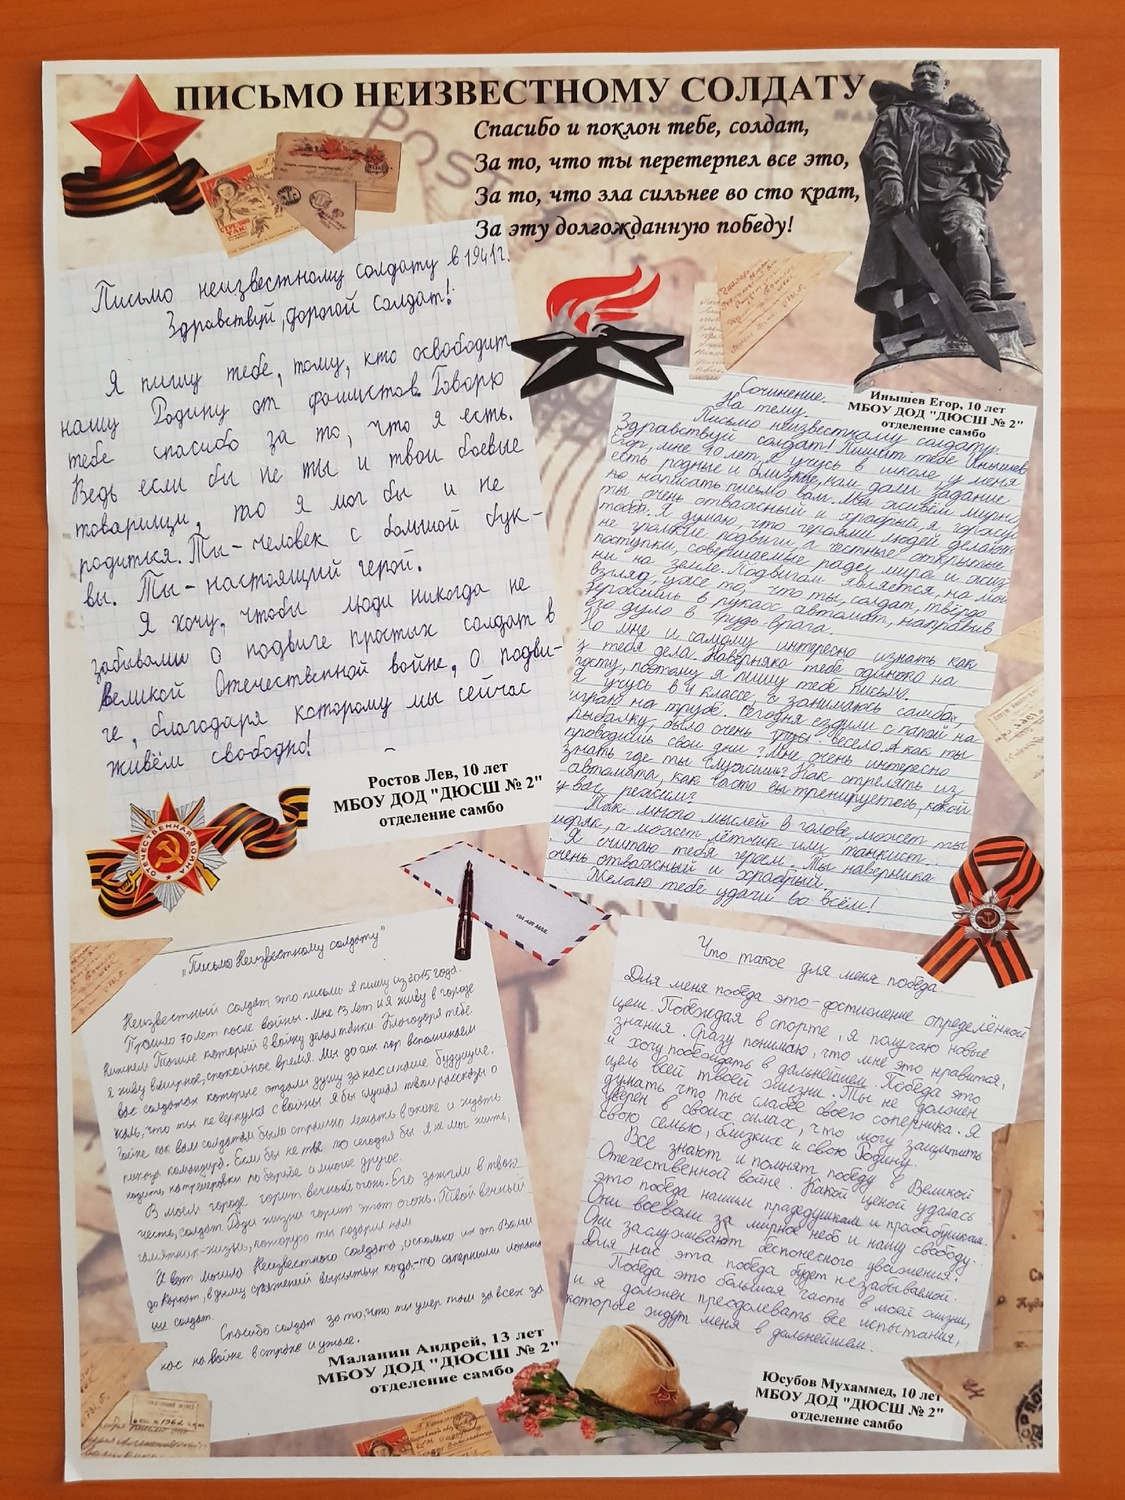 ПИСЬМО НЕИЗВЕСТНОМУ СОЛДАТУ
Спасибо и поклон тебе, солдат,
За то, что ты перетерпел все это,
За то, что зла сильнее во сто крат,
За эту долгожданную победу!
Письмо неизвестному солдату в 1941г.
Здравствуй, дорогой Солдат!
Я пишу тебе, тому, кто освободит
нашу Родину от фашистов. Говорю
тебе спасибо за то, что я есть.
Ведь если бы не ты и твои боевые
товарищи, то я мог бы и не
родиться. Ты - человек с большой бук-
вы. Ты - настоящий герой.
Я хочу, чтобы люди никогда не
забывали о подвиге простых солдат в
Великой Отечественной войне, о подви-
ге, благодаря которому мы сейчас
живём свободно!
Ростов Лев, 10 лет
МБОУ ДОД "ДЮСШ № 2"
отделение самбо
Инышев Егор, 10 лет
МБОУ ДОД "ДЮСШ № 2"
отделение самбо
Сочинение.
На тему.
Письмо неизвестному солдату.
Здравствуй солдат! Пишет тебе Инышев
Егор, мне 10 лет, я учусь в школе, у меня
есть родные и близкие, нам дали задание
но написать письмо вам. Мы живём мирно,
ты очень отважный и храбрый, я горжусь
тобой. Я думаю, что героями людей делают
не громкие подвиги, а честные открытые
поступки, совершаемые ради мира и жиз-
ни на земле. Подвигом является, на мой
взгляд, уже то, что ты, солдат, твёрдо
держишь в руках автомат, направив
его дуло в грудь врага.
Но мне и самому интересно узнать как
у тебя дела. Наверняка тебе одиноко на
посту, поэтому я пишу тебе письмо.
Я учусь в 4 классе, я занимаюсь самбо,
играю на трубе. Сегодня ездили с папой на
рыбалку, было очень весело. А как ты
проводишь свои дни? Мне очень интересно
знать где ты служишь? Как стрелять из
автомата, как часто вы тренируетесь, какой
у вас режим?
Так много мыслей в голове, может ты
моряк, а может лётчик или танкист.
Я считаю тебя героем. Ты наверника
очень отважный и храбрый.
Желаю тебе удачи во всём!
VIA AIR MAIL
ОТЕЧЕСТВЕННАЯ ВОЙНА
„Письмо Неизвестному солдату"
Неизвестный солдат это письмо я пишу из 2015 года.
Прошло 70 лет после войны. Мне 13 лет и я живу в городе
Нижнем Тагиле который в войну делал танки. Благодаря тебе
я живу в мирное, спокойное время. Мы до сих пор вспоминаем
вас солдатах которые отдали душу за нас и наше будущие.
Жаль, что ты не вернулся с войны я бы слушал твои рассказы о
войне как вам солдатам было страшно лежать в окопе и ждать
приказа командира. Если бы не ты то сегодня бы я не мог жить,
ходить на тренировки по борьбе и многое другое.
В моём городе горит вечный огонь. Его зажгли в твою
честь, солдат. Ради жизни горит этот огонь. Твой вечный
памятник-жизнь, которую ты подарил нам
И вот могила Неизвестного солдата, осколки их от Волги
до Карпат, в дыму сражений вырытых когда-то саперными лопата
ми солдат.
Спасибо солдат за то, что ты умер там за всех за
нас на войне в страхе и ужасе.
Маланин Андрей, 13 лет
МБОУ ДОД "ДЮСШ № 2"
отделение самбо
Что такое для меня победа.
Для меня победа это - достижение определённой
цели. Побеждая в спорте, я получаю новые
знания. Сразу понимаю, что мне это нравится,
и хочу побеждать в дальнейшем. Победа это
цель всей твоей жизни. Ты не должен
думать что ты слабее своего соперника. Я
уверен в своих силах, что могу защитить
свою семью, близких и свою Родину.
Все знают и помнят победу в Великой
Отечественной войне. Какой ценой удалась
это победа нашим прадедушкам и прабабушкам.
Они воевали за мирное небо и нашу свободу.
Они заслуживают беспонесного уважения.
Для нас эта победа будет незабываемой.
Победа это большая часть в моей жизни,
и я должен преодолевать все испытания,
которые ждут меня в дальнейшем.
Юсубов Мухаммед, 10 лет
МБОУ ДОД "ДЮСШ № 2"
отделение самбо